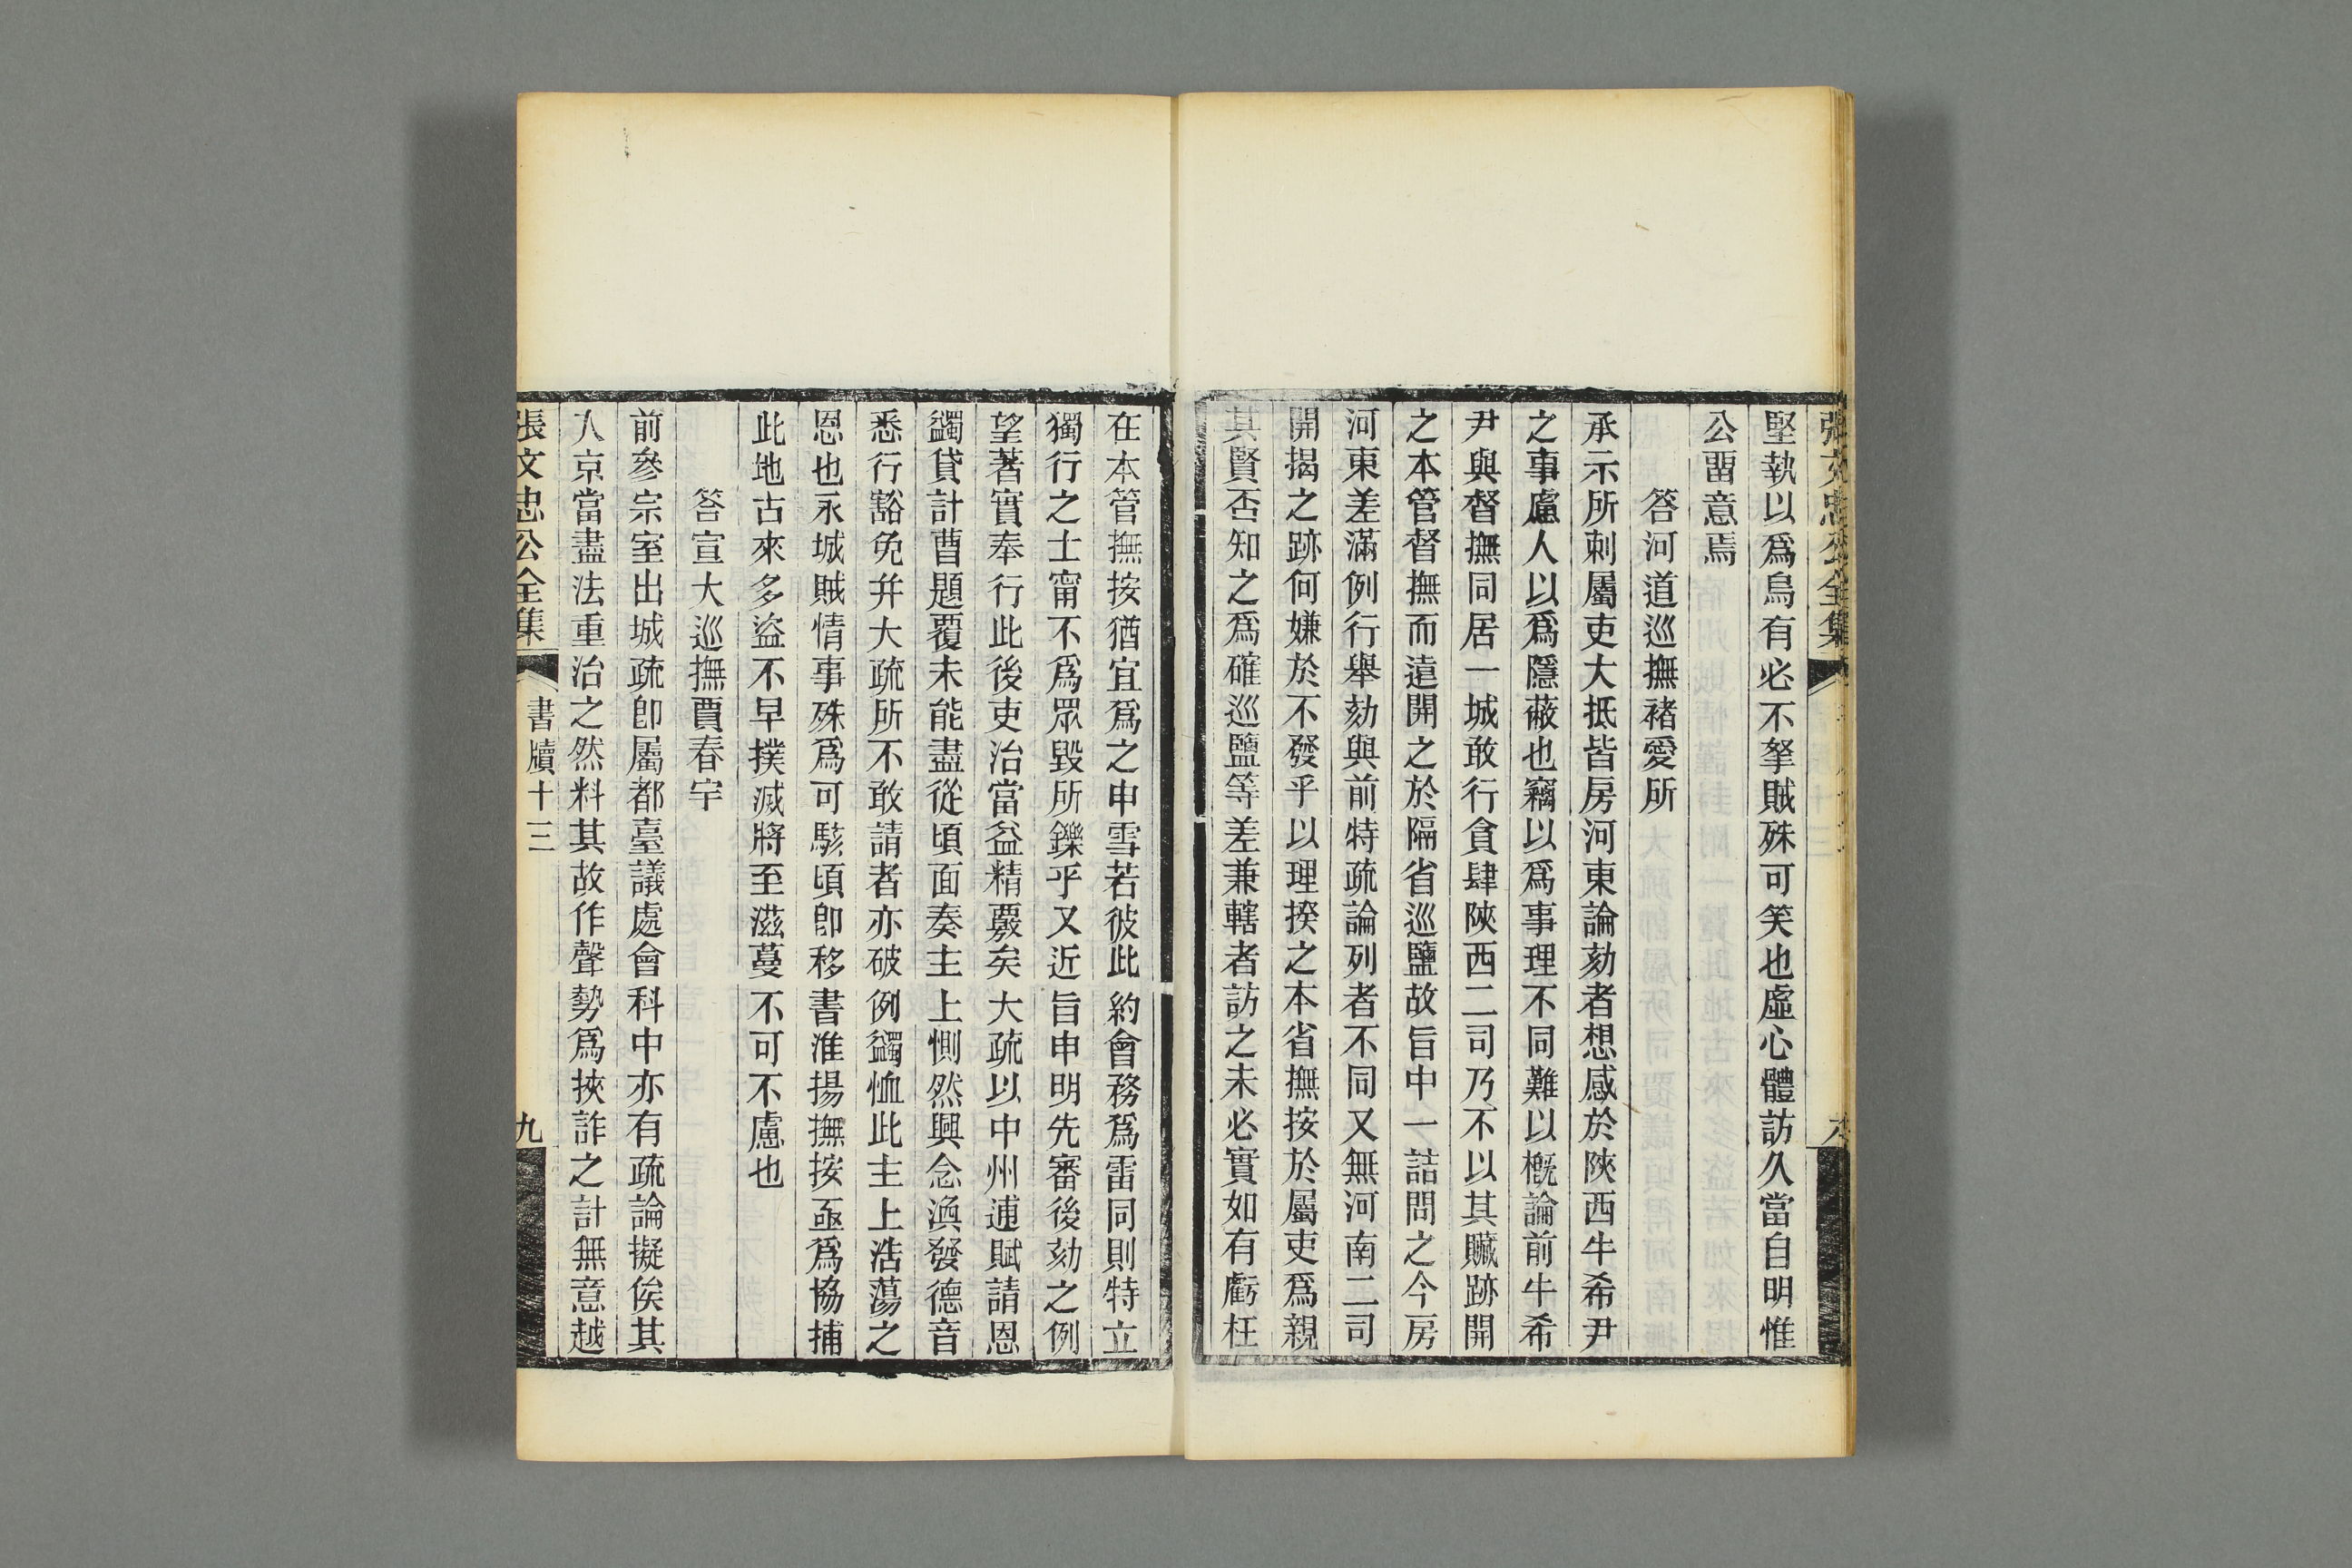 張文忠公全集
堅執以爲烏有必不拏賊殊可笑也虛心體訪久當自明惟
公畱意焉
答河道巡撫褚愛所
承示所刺屬吏大抵皆房河東論劾者想感於陝西牛希尹
之事慮人以爲隱蔽也竊以爲事理不同難以槪論前牛希
尹與督撫同居一城敢行貪肆陝西二司乃不以其贓跡開
之本管督撫而遠開之於隔省巡鹽故旨中一詰問之今房
河東差滿例行舉劾與前特疏論列者不同又無河南二司
開揭之跡何嫌於不發乎以理揆之本省撫按於屬吏爲親
其賢否知之爲確巡鹽等差兼轄者訪之未必實如有虧枉
在本管撫按猶宜爲之申雪若彼此約會務爲雷同則特立
獨行之士甯不爲眾毀所鑠乎又近旨申明先審後劾之例
望著實奉行此後吏治當益精覈矣大疏以中州逋賦請恩
蠲貸計曹題覆未能盡從頃面奏主上惻然興念渙發德音
悉行豁免幷大疏所不敢請者亦破例蠲恤此主上浩蕩之
恩也永城賊情事殊爲可駭頃卽移書淮揚撫按亟爲協捕
此地古來多盜不早撲滅將至滋蔓不可不慮也
答宣大巡撫賈春宇
前參宗室出城疏卽屬都臺議處會科中亦有疏論擬俟其
入京當盡法重治之然料其故作聲勢爲挾詐之計無意越
張文忠公全集
書牘十三
九